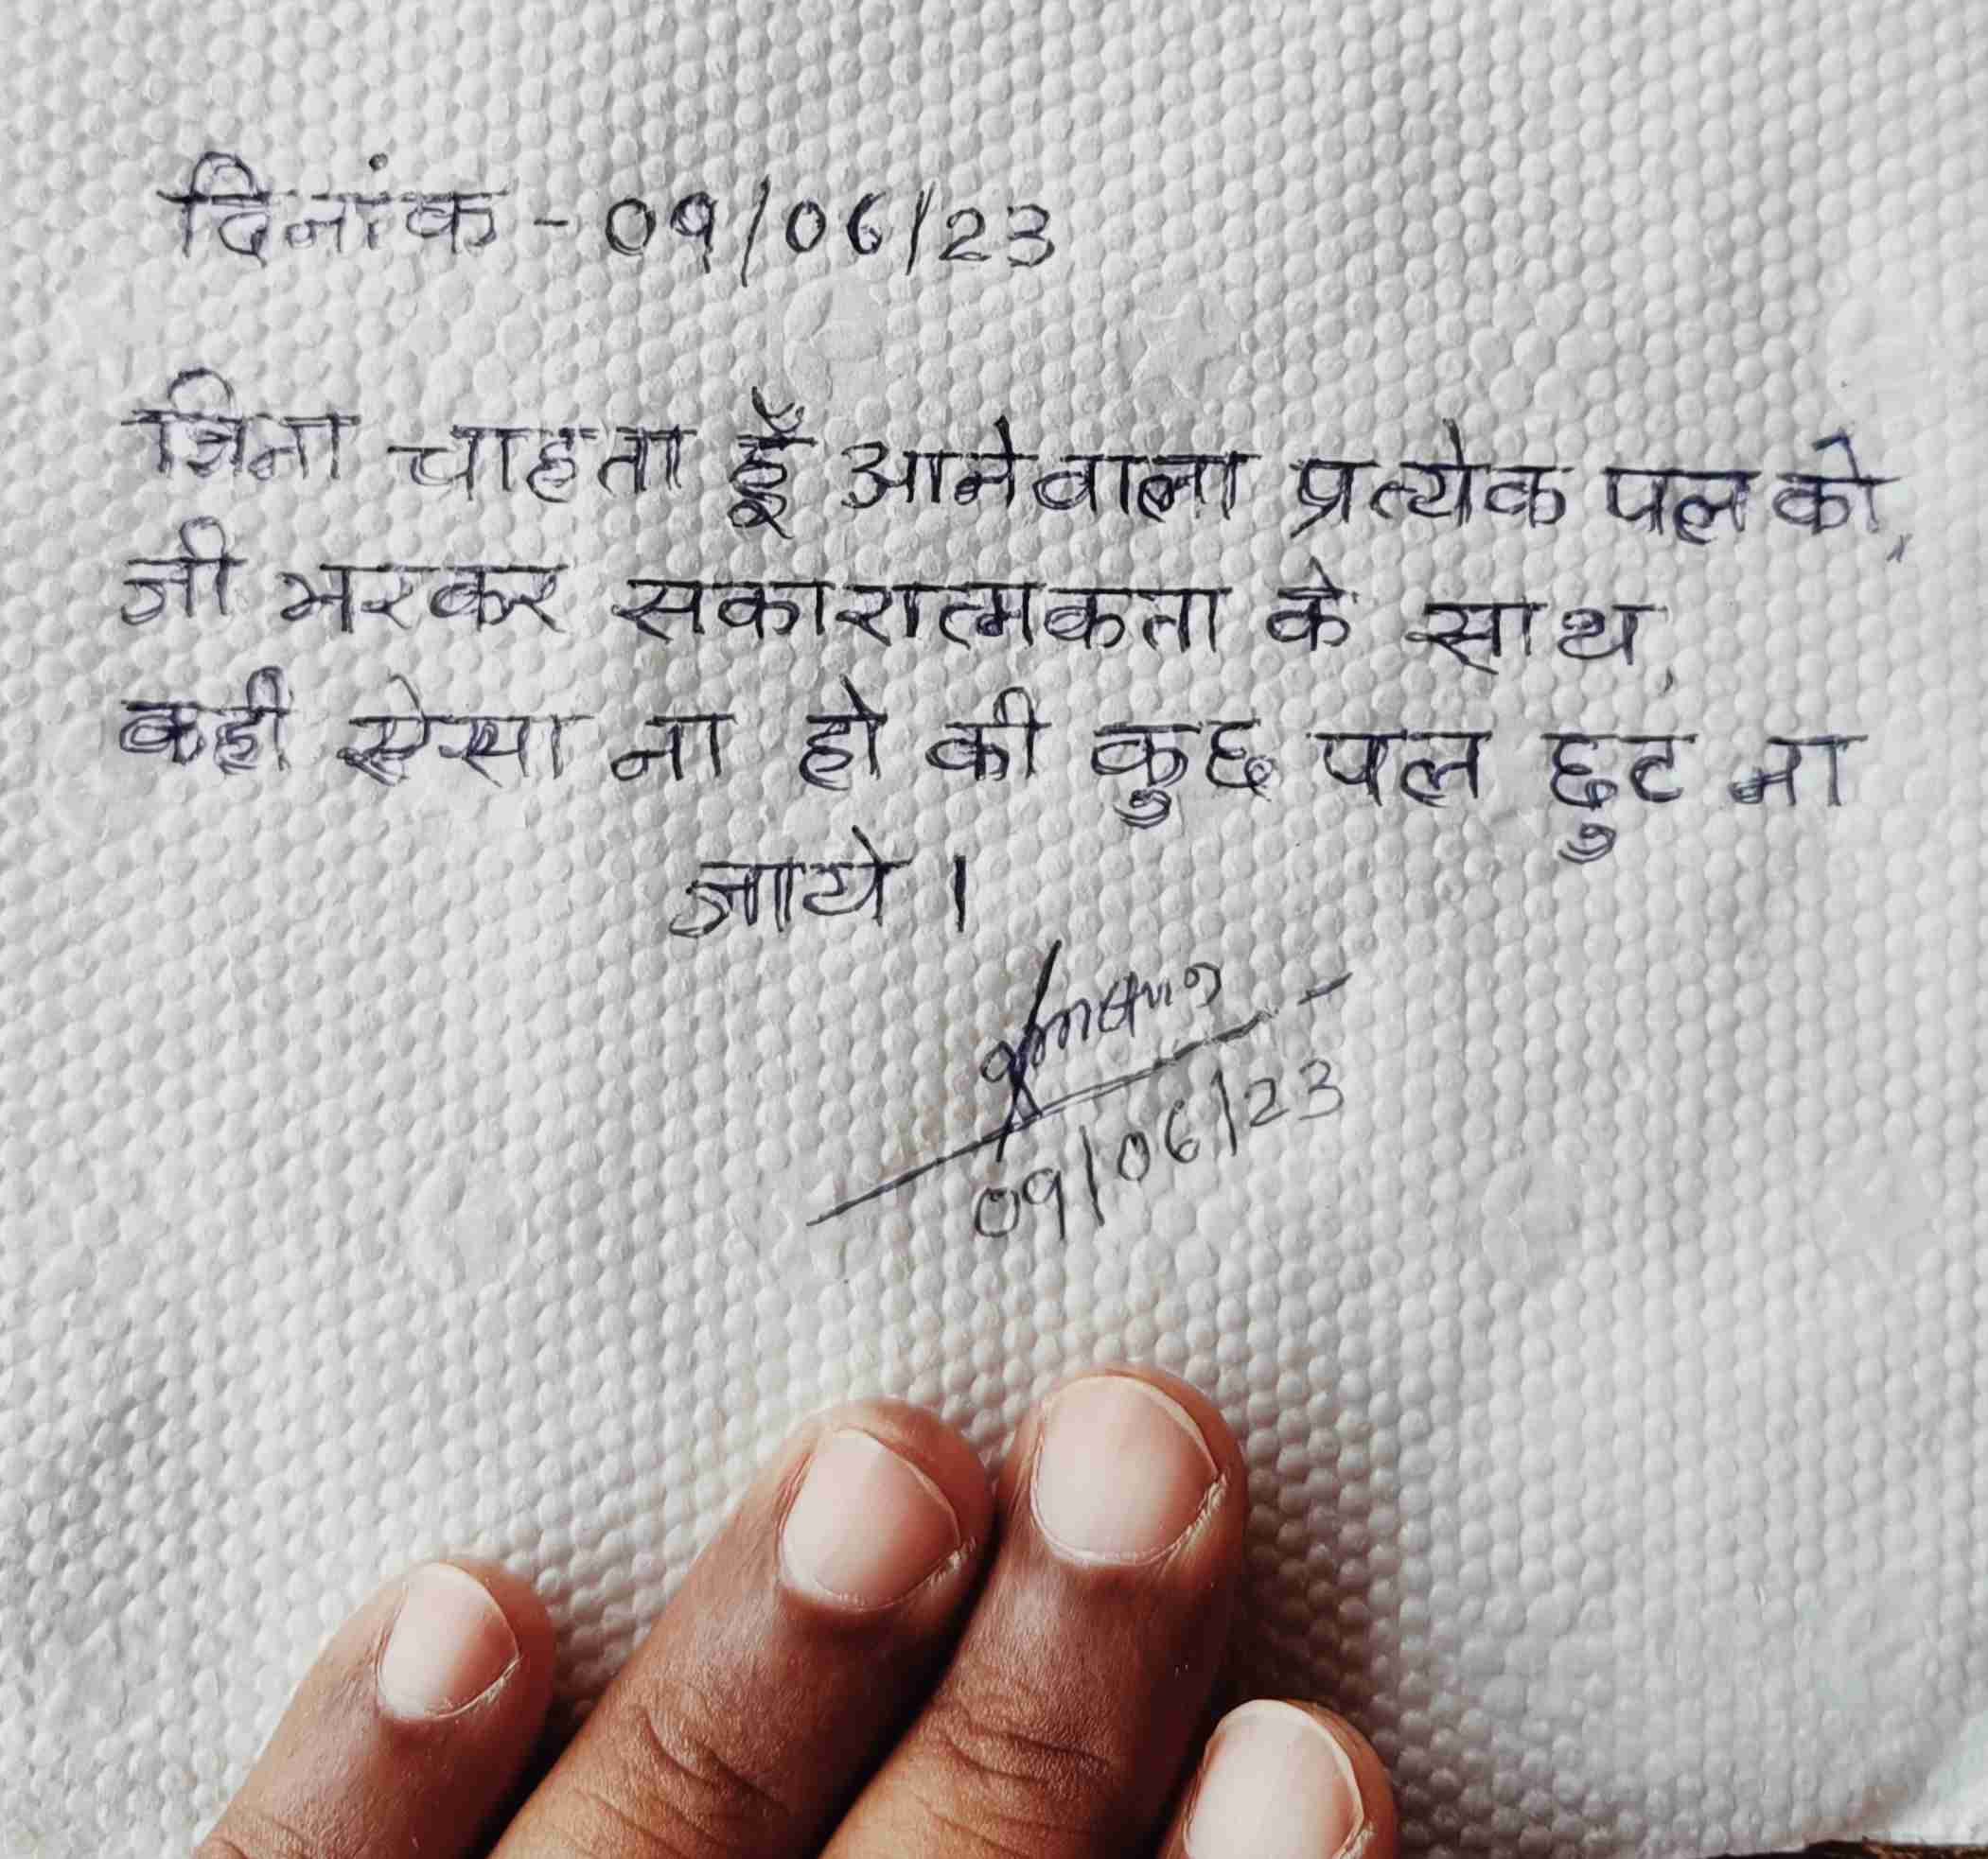 दिनांक - 09/06/23
जिना चाहता हूँ आनेवाला प्रत्येक पल को,
जी भरकर सकारात्मकता के साथ,
कही ऐसा ना हो की कुछ पल छुट ना
जाये ।
09/06/23